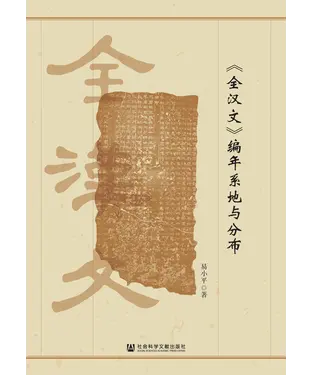 全漢文
《全汉文》编年系地与分布
易小平◎著
社会科学文献出版社
SOCIAL SCIENCES ACADEMIC PRESS (CHINA)